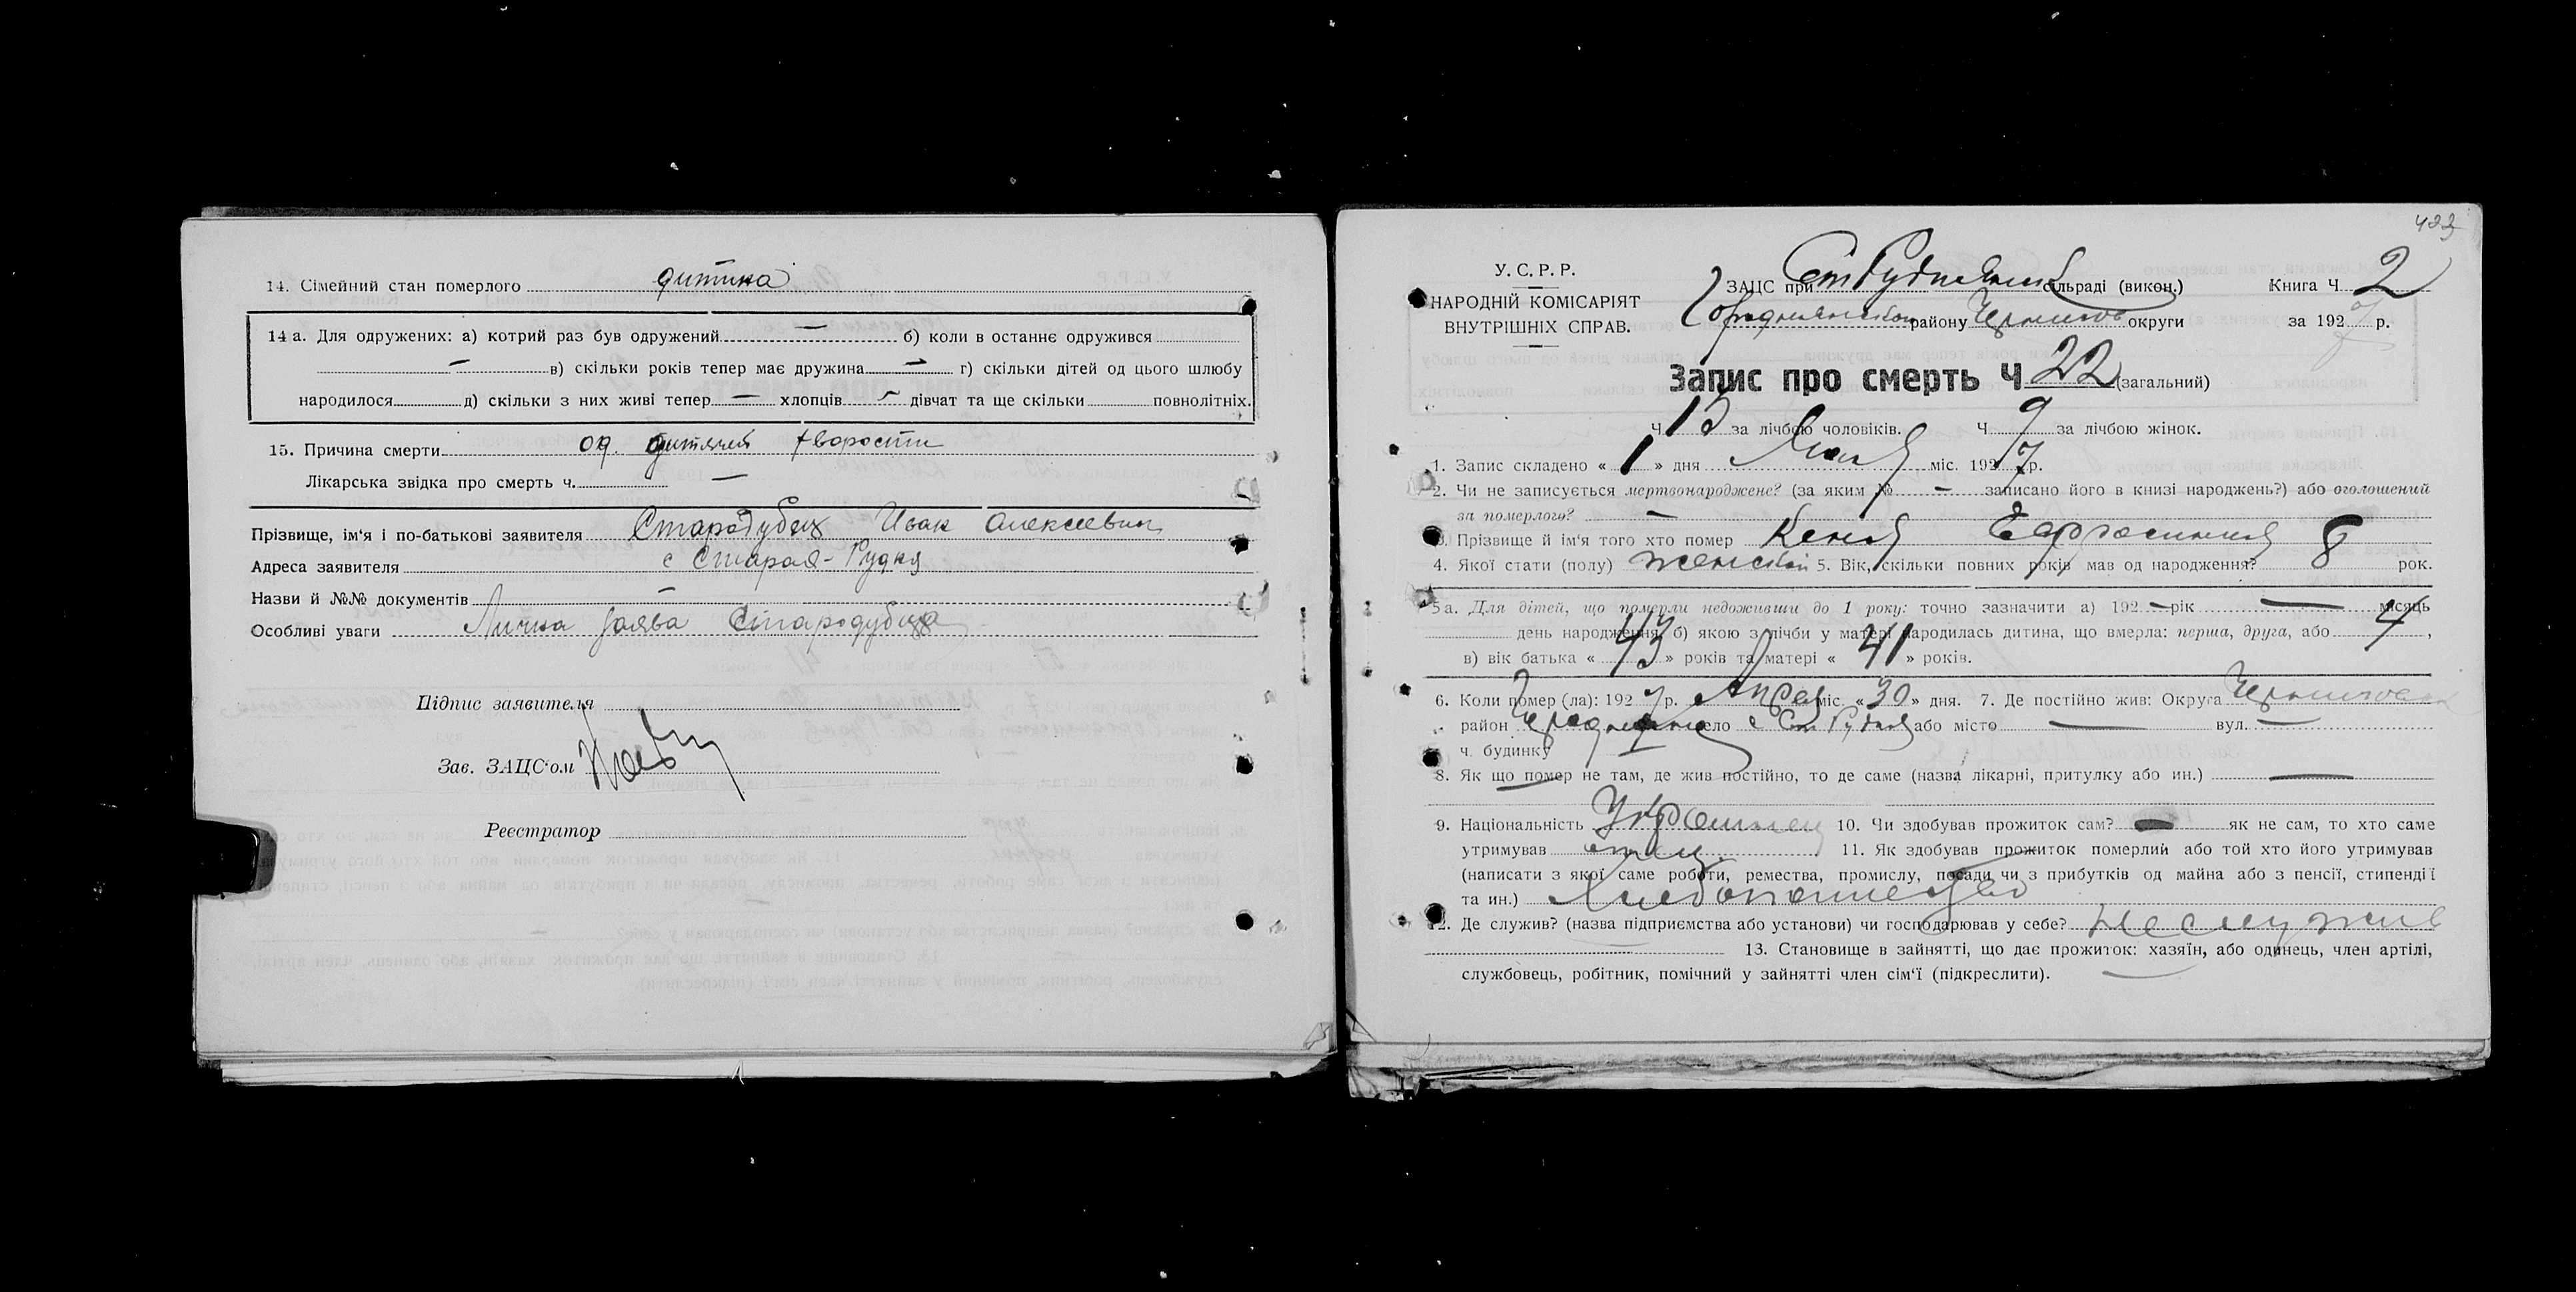 14. Сімейний стан померлого дитина
14 а. Для одружених: а) котрий раз був одружений — б) коли в останнє одружився
— в) скільки років тепер має дружина — г) скільки дітей од цього шлюбу
народилося д) скільки з них живі тепер — хлопців — дівчат та ще скільки повнолітніх.
15. Причина смерти од дитячей хворости
Лікарська звідка про смерть ч. —
Прізвище, ім'я і по-батькові заявителя Стародубец Исак Алексеевич
Адреса заявителя с Старая-Рудня
Назви й №№ документів —
Особливі уваги Лична заява Стародубца
Підпис заявителя
Зав. ЗАЦС'ом
Реєстратор
423
У. С. Р. Р.
НАРОДНІЙ КОМІСАРІЯТ
ВНУТРІШНІХ СПРАВ.
ЗАЦС при сільраді (викон.) Книга Ч 2
району округи за 1927 р.
Запис про смерть Ч 22 (загальний)
Ч 13 за лічбою чоловіків. Ч 9 за лічбою жінок.
1. Запис складено « 1 » дня Мая міс. 1927 р.
2. Чи не записується мертвонароджене? (за яким № — записано його в книзі народжень?) або оголошений
за померлого? —
3. Прізвище й ім'я того хто помер Кеня Ефросиния
4. Якої стати (полу) женской 5. Вік, скільки повних років мав од народження? 8 рок.
5 а. Для дітей, що померли недоживши до 1 року: точно зазначити а) 192 — рік — місяць
день народження, б) якою з лічби у матері народилась дитина, що вмерла: перша, друга, або 4,
в) вік батька « 43 » років та матері « 41 » років.
6. Коли помер (ла): 1927 р. Апреля міс. « 30 » дня. 7. Де постійно жив: Округа
район село с Ст Рудня або місто — вул. —
ч. будинку —
8. Як що помер не там, де жив постійно, то де саме (назва лікарні, притулку або ин.) —
9. Національність Украинец 10. Чи здобував прожиток сам? — як не сам, то хто саме
утримував отец 11. Як здобував прожиток померлий або той хто його утримував
(написати з якої саме роботи, ремества, промислу, посади чи з прибутків од майна або з пенсії, стипендії
та ин.)
12. Де служив? (назва підприємства або установи) чи господарював у себе? не служив
13. Становище в зайнятті, що дає прожиток: хазяїн, або одинець, член артілі,
службовець, робітник, помічний у зайнятті член сім'ї (підкреслити).